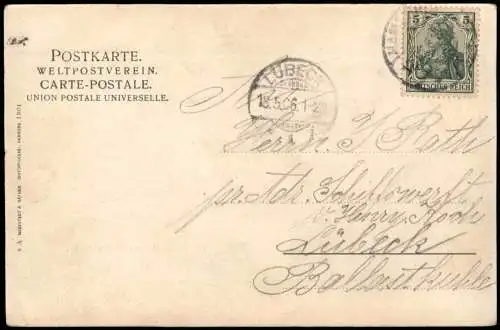 POSTKARTE.
WELTPOSTVEREIN.
CARTE-POSTALE.
UNION POSTALE UNIVERSELLE.
5 5
DEUTSCHES REICH
LÜBECK
13.5.06. 1-2
Herrn J. Rath
pr. Adr. Schiffswerft
v. Henry Koch
Lübeck
Ballastkuhle